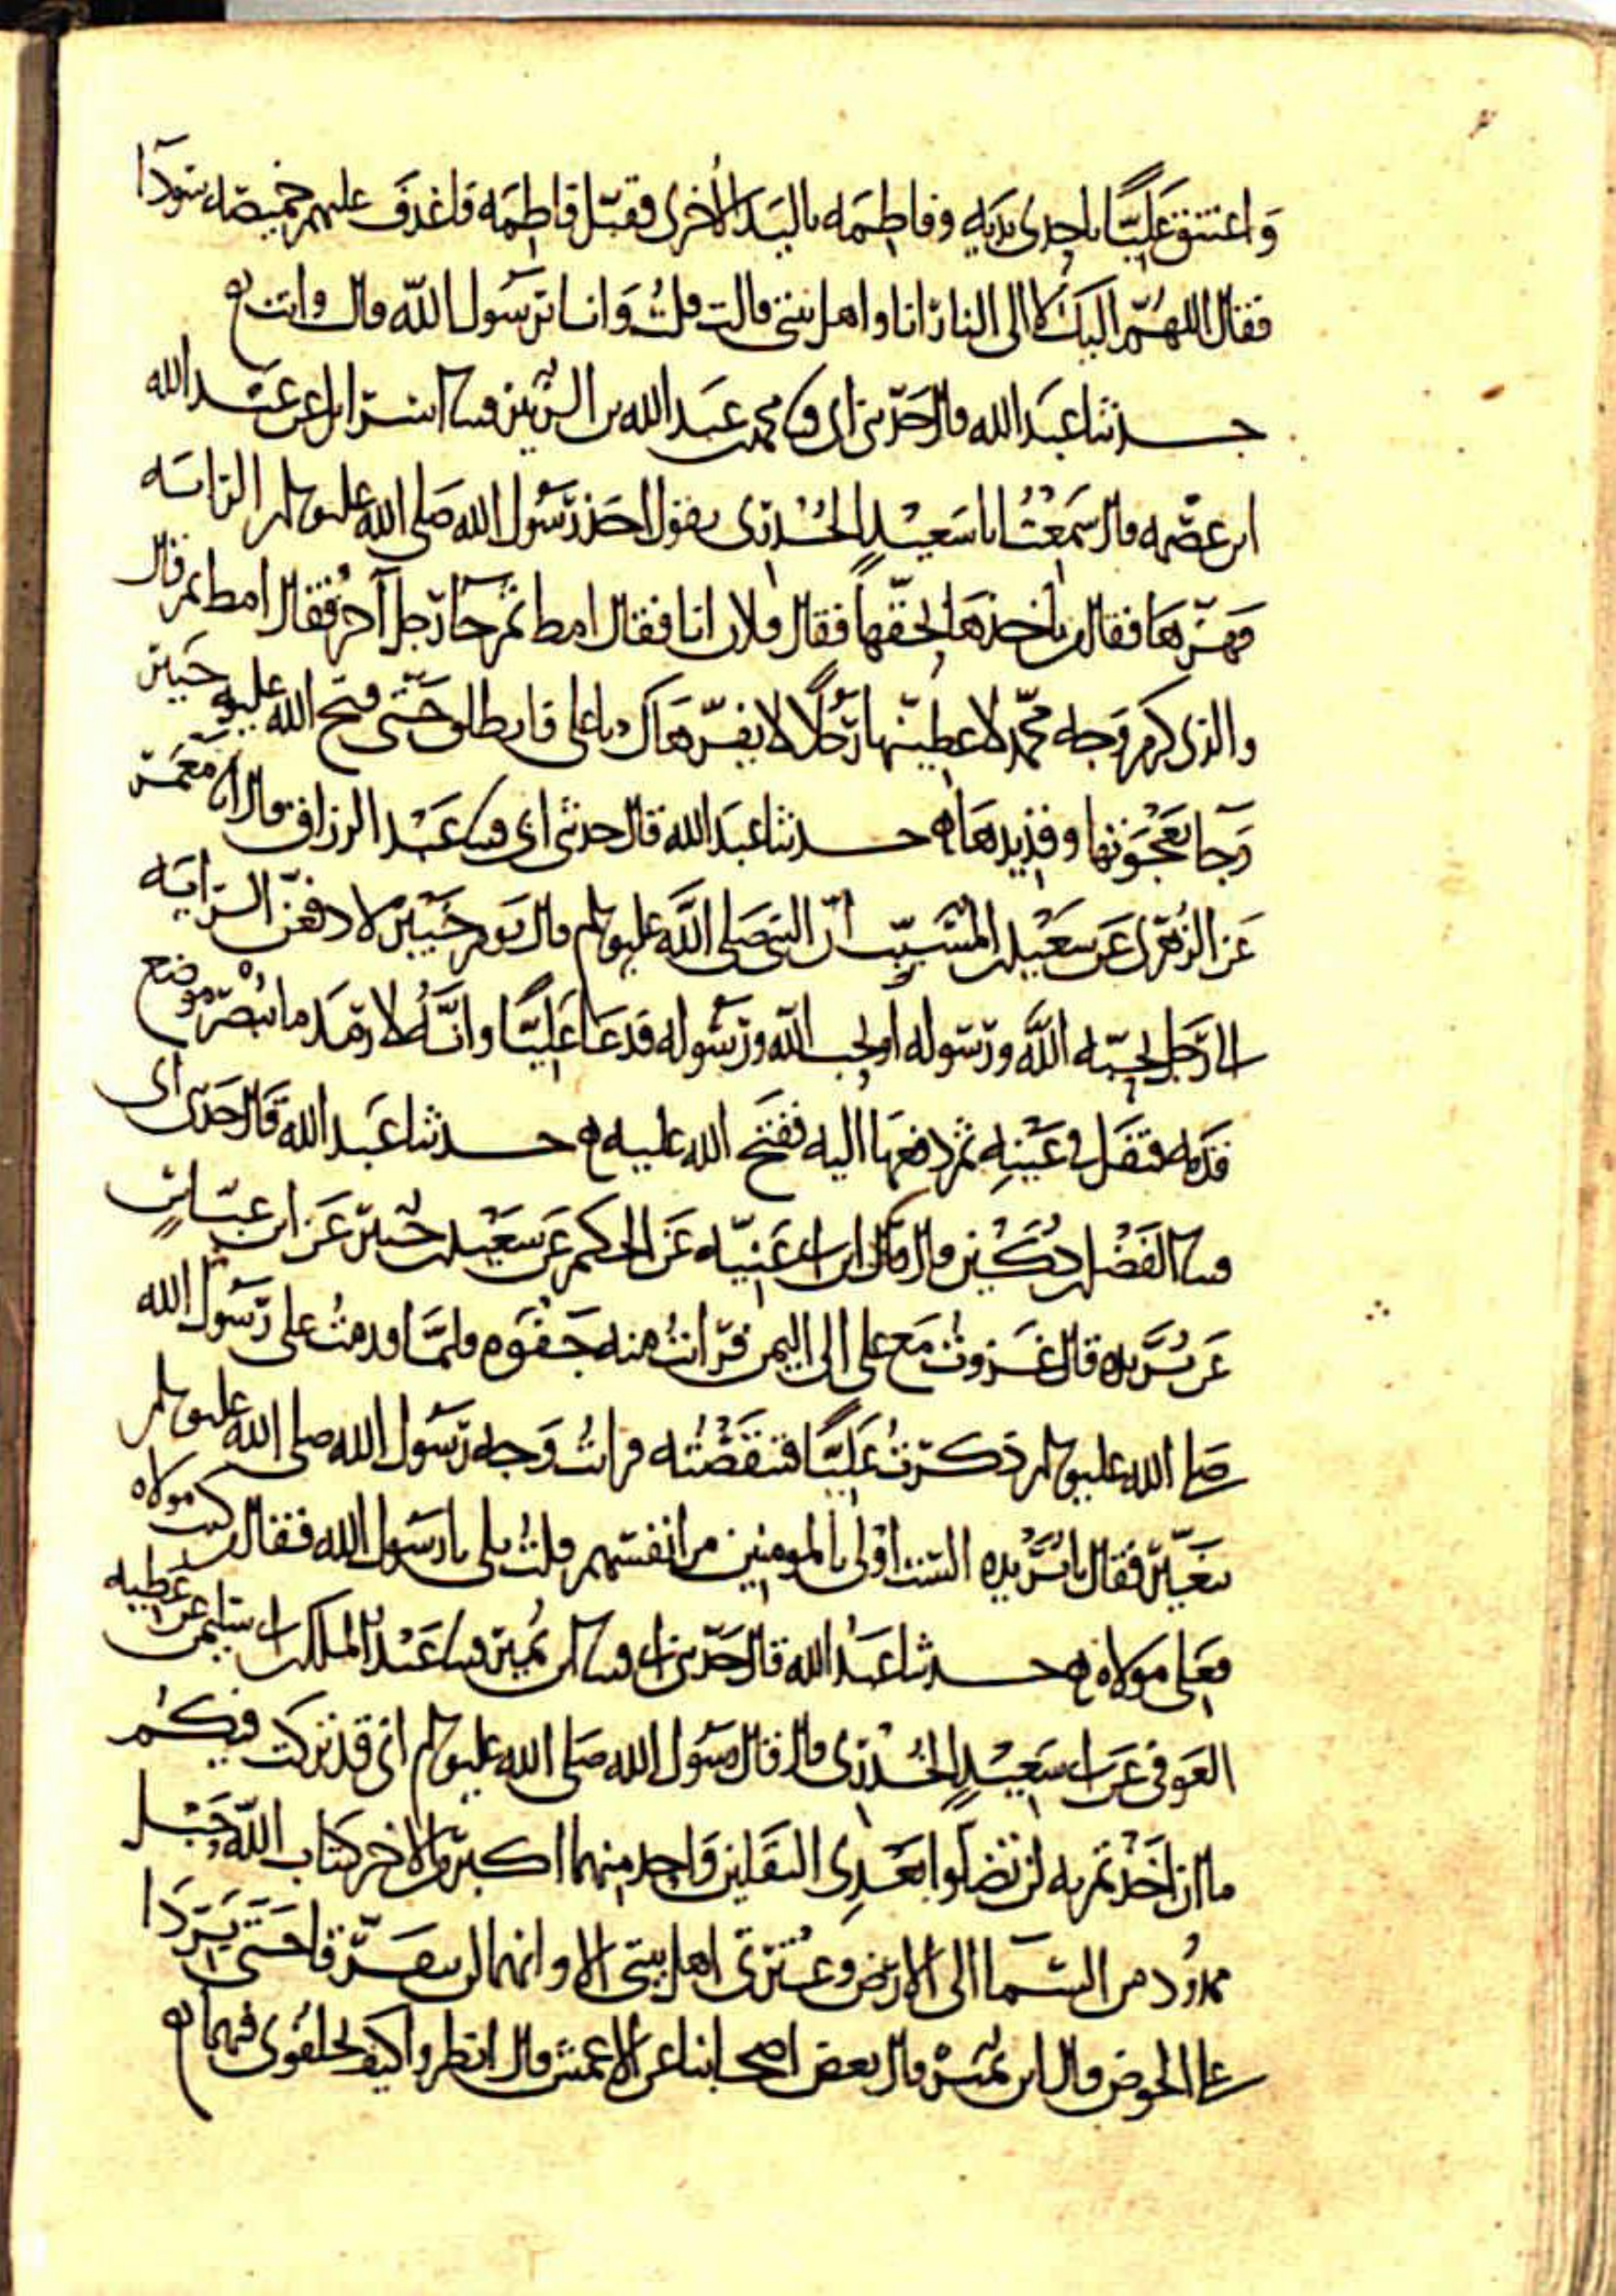 واعتنق عليًّا باحدى يديه وفاطمه باليد الاخرى فقبّل فاطمه فاغدف عليهم خميصه سودآ
فقال اللهمّ اليك لا الى النار انا واهل بيتى قالت قلت وانا يا رسول الله قال وانت
حدثنا عبد الله قال حدّثنى ابى محمد بن عبد الله بن الزبير اسرايل عن عبد الله
ابن عصمه قال سمعت ابا سعيد الخدرى يقول اخذ رسول الله صلى الله عليه وسلم الرايه
فهزّها فقال من ياخذها بحقّها فقال فلان انا فقال امط ثم جآ رجل آخر فقال امط ثم قال
والذى كرم وجه محمّد لاعطينّها رجلًا لا يفرّ هاك يا على فانطلق حتّى فتح الله عليه خيبر
وجا بعجوتها وقديدها حدثنا عبد الله قال حدثنى ابى عبد الرزاق قال انا معمر
عن الزُهرى عن سعيد بن المسيّب انّ النبى صلى الله عليه وسلم قال يوم خيبر لادفعنّ الرايه
الى رجل يحبّه الله ورسوله او يحب الله ورسوله فدعا عليًّا وانّه لارمد ما يُبصر موضع
قدمه فتفل فى عينيه ثم دفعها اليه ففتح الله عليه حدثنا عبد الله قال حدثنى ابى
الفضل بن دكين قال ابن ابى غنيّه عن الحكم عن سعيد بن جبير عن ابن عبّاس
عن بُريده قال غزوتُ مع على الى اليمن فرايتُ منه جفوه فلمّا قدمتُ على رسول الله
صلى الله عليه وسلم ذكرتُ عليًّا فتنقّصته فرايتُ وجه رسول الله صلى الله عليه وسلم
يتغيّر فقال يا بُريده الستُ اولى بالمومنين من انفسهم قلتُ بلى يا رسول الله فقال من كنت مولاه
فعلى مولاه حدثنا عبد الله قال حدّثنى ابى ابن نُمير عبد الملك بن ابى سليمن عن عطيه
العوفى عن ابى سعيد الخُدرى قال قال رسول الله صلى الله عليه وسلم انى قد تركت فيكُم
ما ان اخذتم به لن تضلوا بعدى الثقلين واحد منهما اكبر من الاخر كتاب الله حبل
ممدُود من السّمآ الى الارض وعترتى اهل بيتى الا وانهما لن يفترّقا حتى يردا
على الحوض قال ابن نُمير قال بعض اصحابنا عن الاعمش قال انظروا كيف تخلفُونى فيهما